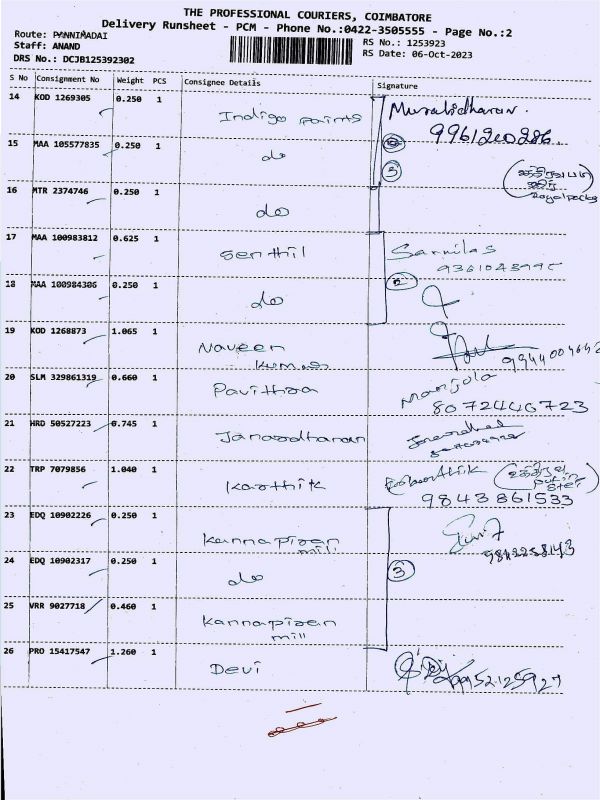 THE PROFESSIONAL COURIERS, COIMBATORE
Delivery Runsheet - PCM - Phone No.:0422-3505555 - Page No.:2
Route: PANNIMADAI
Staff: ANAND
DRS No.: DCJB125392302
RS No.: 1253923
RS Date: 06-Oct-2023
S No Consignment No Weight PCS Consignee Details Signature
14 KOD 1269305 0.250 1 Indigo paints Muralidharan.
9961200286
15 MAA 105577835 0.250 1 do
3
16 MTR 2374746 0.250 1 do
17 MAA 100983812 0.625 1 Senthil
18 MAA 100984306 0.250 1 do
19 KOD 1268873 1.065 1 Naveen
Kumar
20 SLM 329861319 0.660 1 Pavithra Manjula
8072446723
21 HRD 50527223 0.745 1 Janardharan
22 TRP 7079856 1.040 1 Karthik Karthik
9843861533
23 EDQ 10902226 0.250 1 Kannapiran
mill
24 EDQ 10902317 0.250 1 do 3
25 VRR 9027718 0.460 1 Kannapiran
mill
26 PRO 15417547 1.260 1 Devi 9952125927